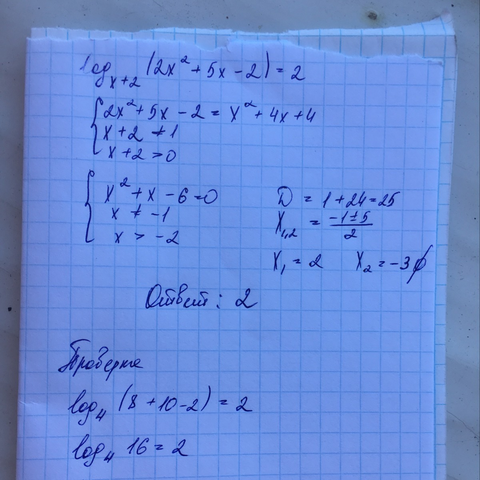 log_{x+2} (2x² + 5x - 2) = 2
{ 2x² + 5x - 2 = x² + 4x + 4
x + 2 ≠ 1
x + 2 > 0
{ x² + x - 6 = 0
x ≠ -1
x > -2
D = 1 + 24 = 25
x₁,₂ = (-1 ± 5)/2
x₁ = 2 x₂ = -3 ∅
Ответ: 2
Проверка
log₄ (8 + 10 - 2) = 2
log₄ 16 = 2